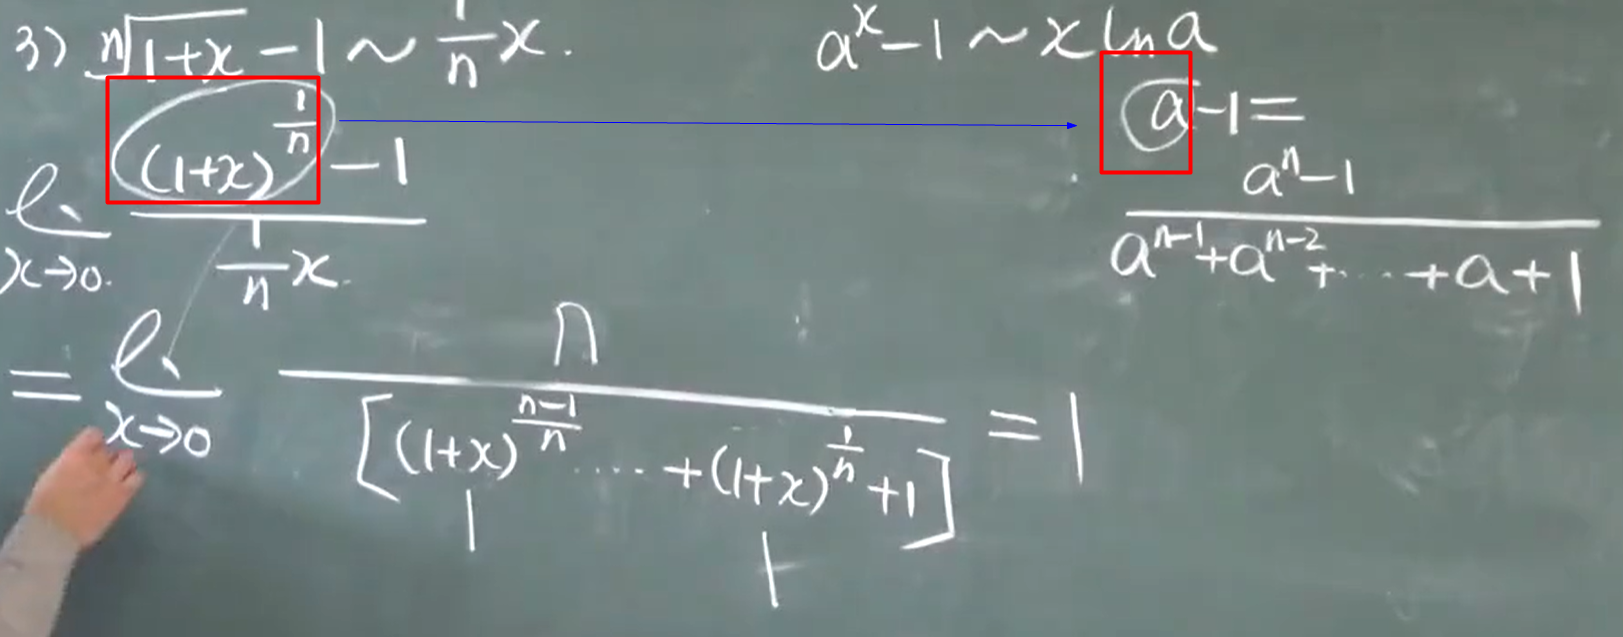 3) ⁿ√(1+x) - 1 ~ 1/n x.
aˣ - 1 ~ x ln a
lim x→0 ((1+x)^(1/n) - 1) / (1/n x)
a - 1 = (aⁿ - 1) / (aⁿ⁻¹ + aⁿ⁻² + ⋯ + a + 1)
= lim x→0 n / [(1+x)^((n-1)/n) ⋯ + (1+x)^(1/n) + 1] = 1
1 1